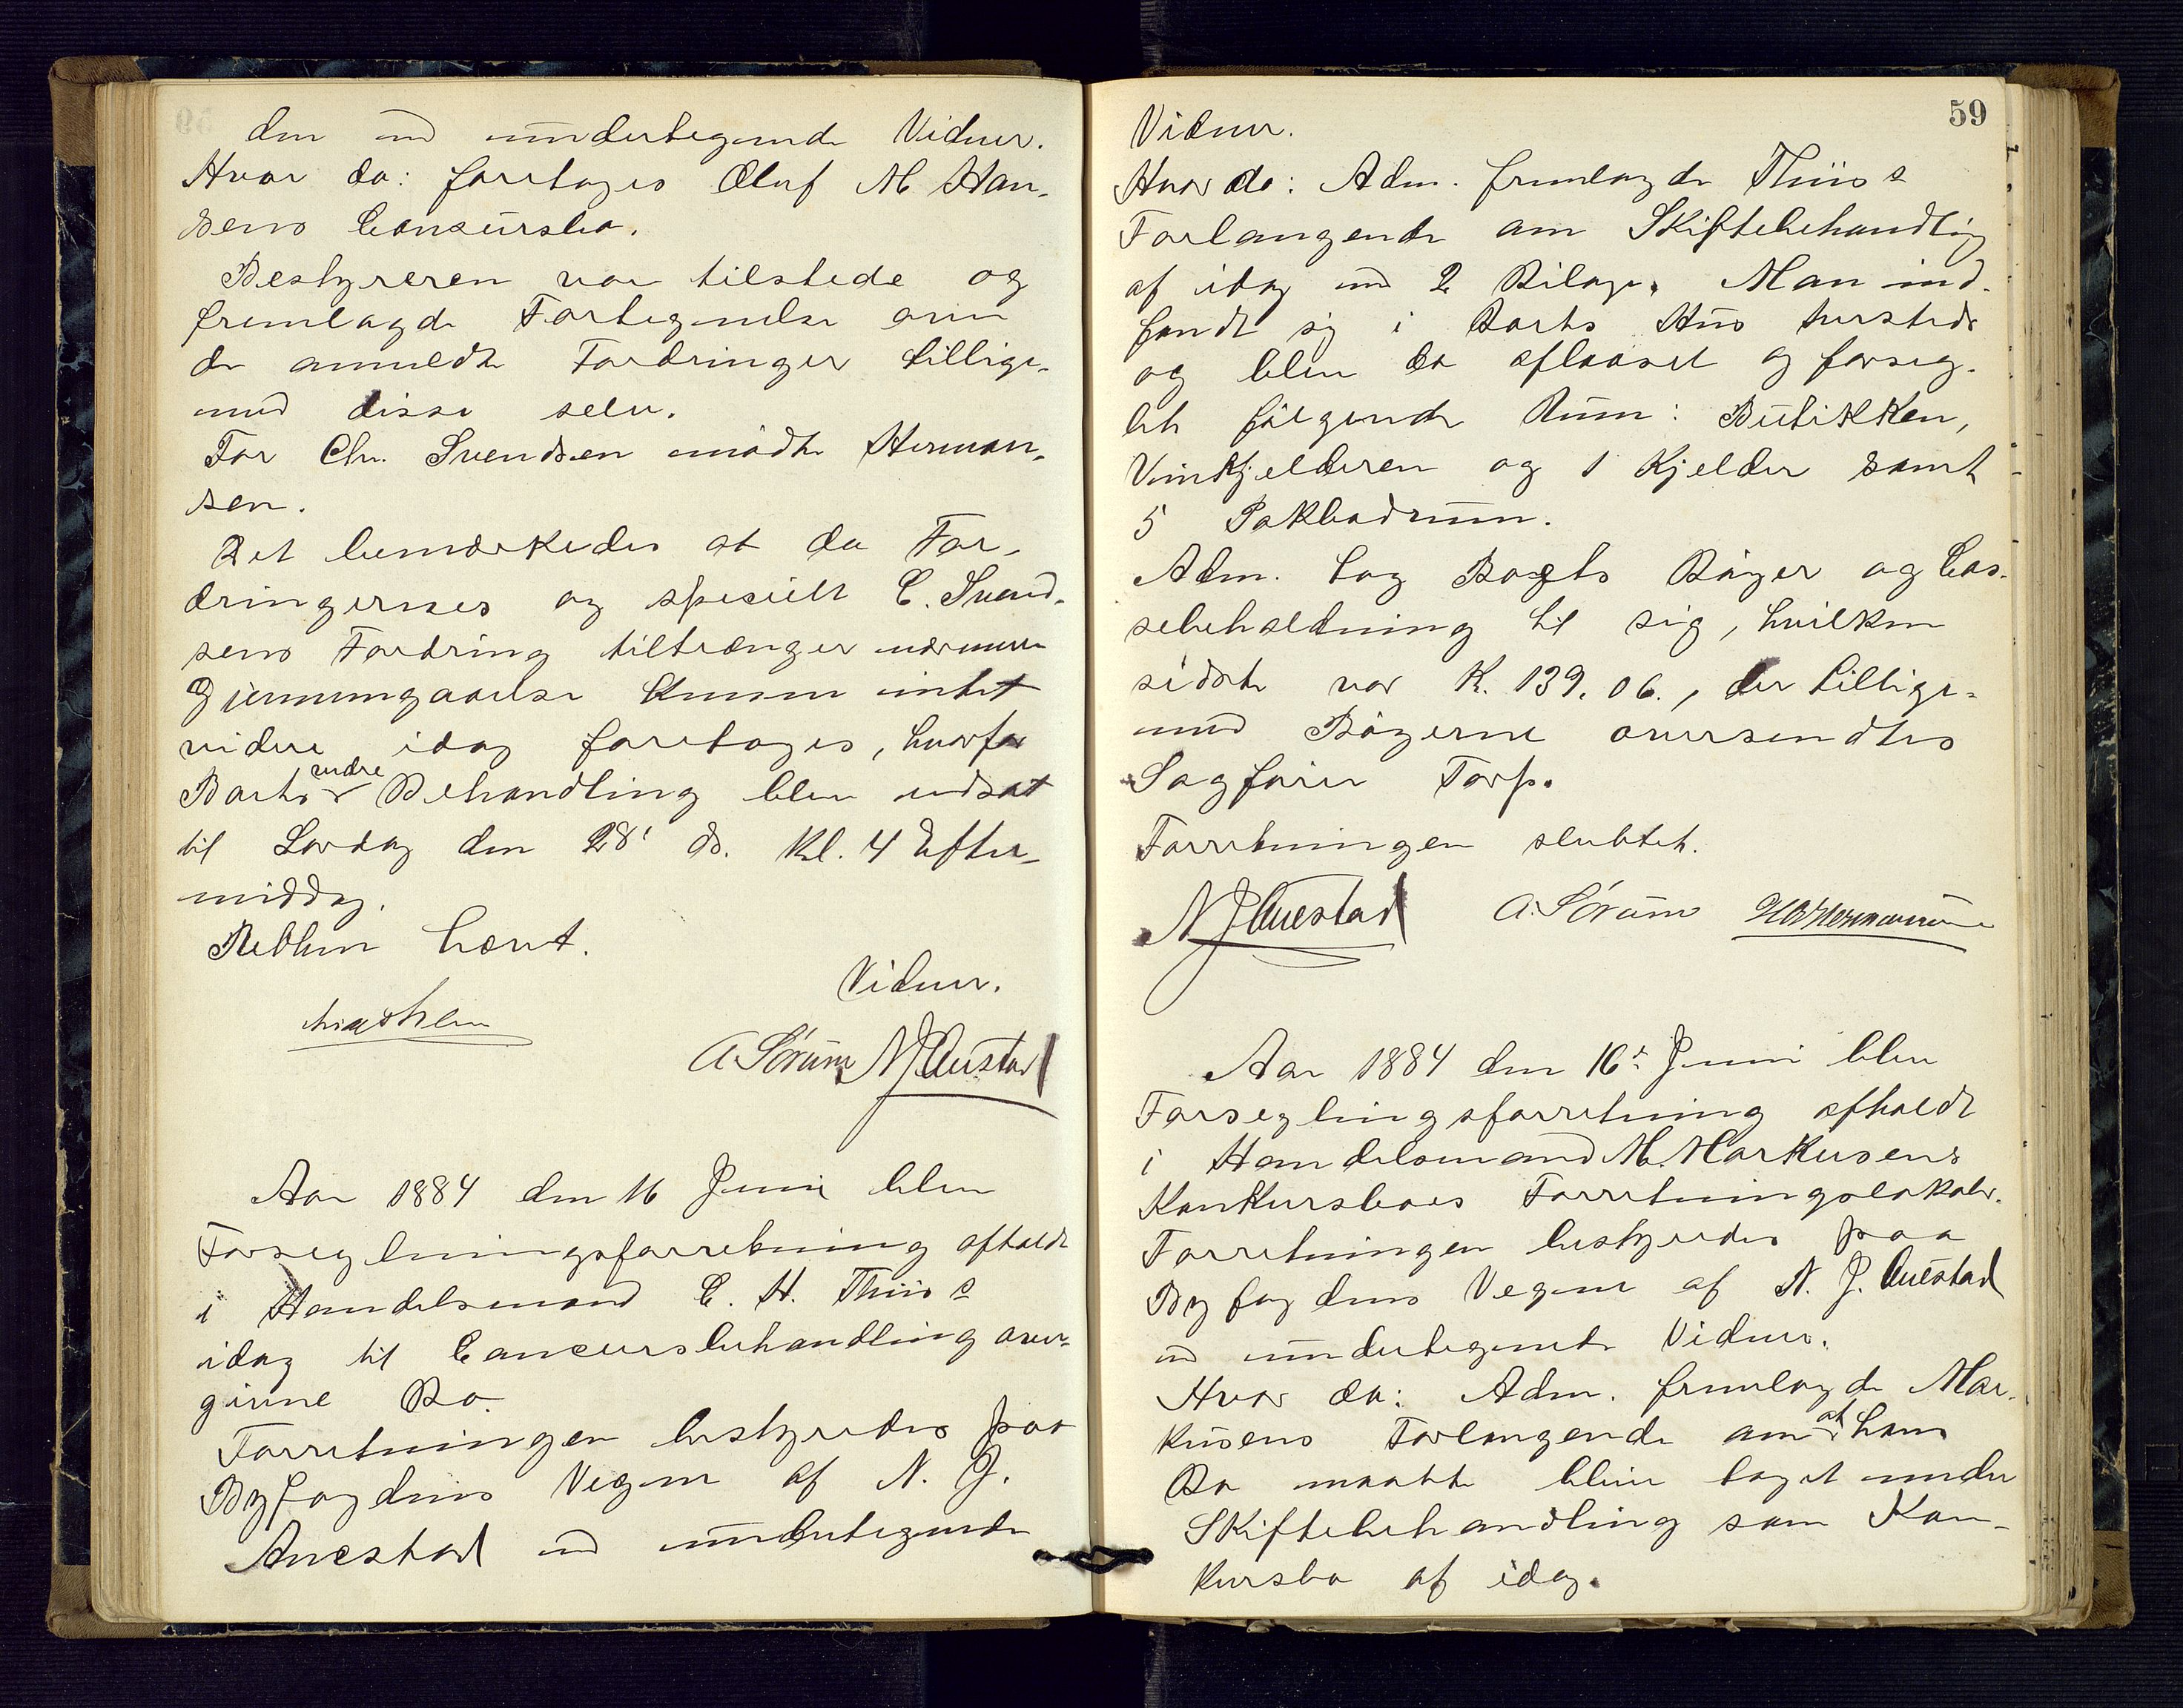 den med undertegnede Vidner.
Hvor da: foretoges Oluf M. Han-
sens Concursbo.
Bestyreren var tilstede og
fremlagde Fortegnelse over
de anmeldte Fordringer tillige-
med disse selv.
For Chr. Svendsen mødte Herman-
sen.
Det bemærkedes at da For-
dringernes og specielt C. Svend-
sens Fordring tiltrænger nærmere
Gjennemgaaelse kunne intet
videre idag foretages, hvorfor
Boets videre Behandling blev udsat
til Lørdag den 28' ds. Kl. 4 Efter-
middag.
Retten hævet.
Vidner.
A. Sørum N J Auestad
Aar 1884 den 16 Juni blev
Forseglningsforretning afholdt
i Handelsmand C. H. Thiis s
idag til Concursbehandling over-
givne Bo.
Forretningen bestyredes paa
Byfogdens Vegne af N. J.
Auestad med undertegnede
59
Vidner.
Hvor da: Adm. fremlagde Thiis s
Forlangende om Skiftebehandling
af idag med 2 Bilage. Man ind-
fandt sig i Boets Hus hersteds
og blev da aflaaset og forseg-
let følgende Rum: Butikken,
Vinkjelderen og 1 Kjelder samt
5 Pakbodrum.
Adm. tog Boets Bøger og Cas-
sebeholdning til sig, hvilken
sidste var K. 139.06., der tillige-
med Bøgerne oversendtes
Sagfører Torp.
Forretningen sluttet.
N J Auestad A. Sørum
Aar 1884 den 16' Juni blev
Forseglingsforretning afholdt
i Handelsmand M. Markusens
Konkursboes Forretningslokaler.
Forretningen bestyredes paa
Byfogdens Vegne af N. J. Auestad
med undertegnede Vidner.
Hvor da: Adm. fremlagde Mar-
kusens Forlangende om at hans
Bo maatte blive taget under
Skiftebehandling som Kon-
kursbo af idag.